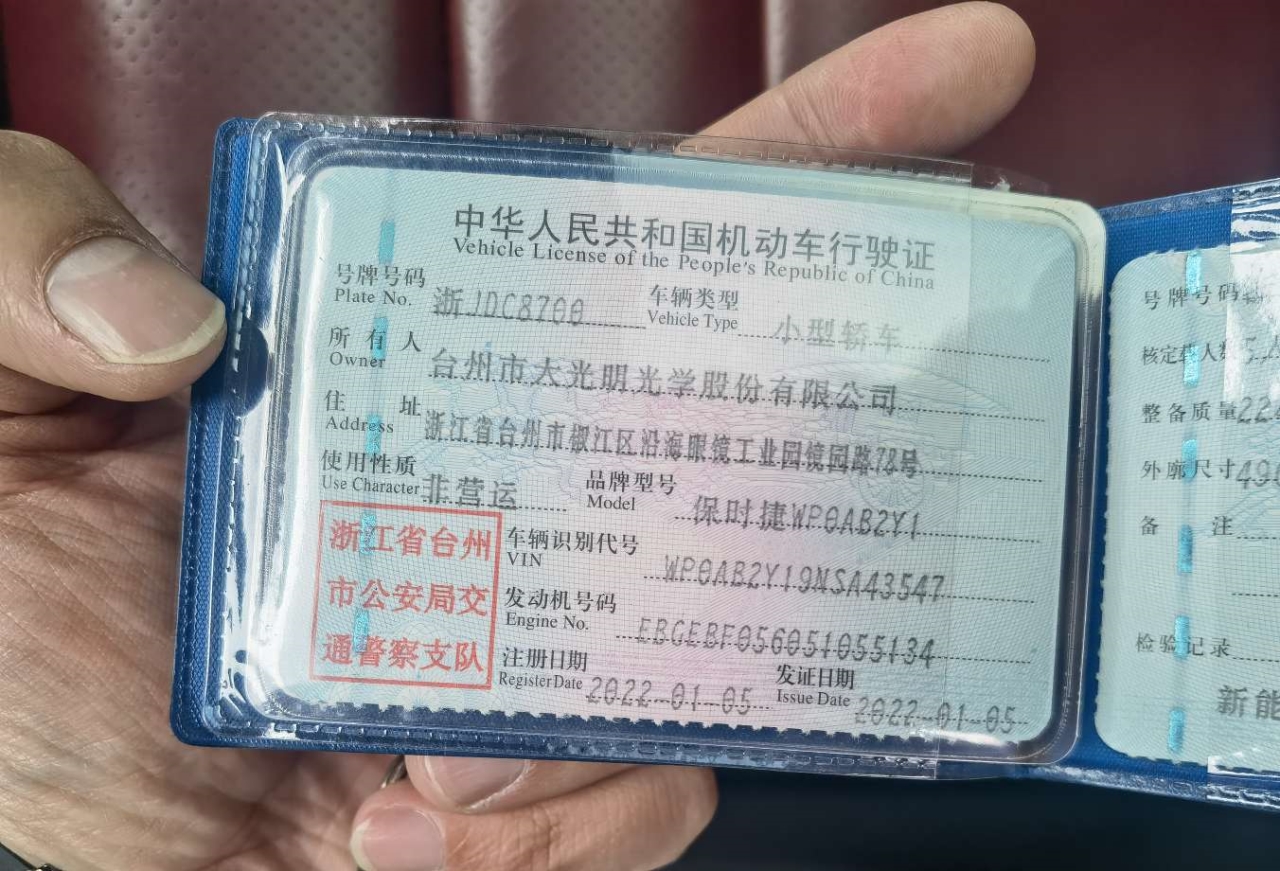 中华人民共和国机动车行驶证
Vehicle License of the People's Republic of China
号牌号码 浙JDC8700 车辆类型 小型轿车
Plate No. Vehicle Type
所有人 台州市大光明光学股份有限公司
Owner
住址 浙江省台州市椒江区沿海眼镜工业园镜园路78号
Address
使用性质 非营运 品牌型号 保时捷WP0AB2Y1
Use Character Model
浙江省台州
市公安局交
通警察支队
车辆识别代号 WP0AB2Y19NSA43547
VIN
发动机号码 EBGEBF056051055134
Engine No.
注册日期 2022-01-05 发证日期 2022-01-05
Register Date Issue Date
号牌号码
核定载人数 5人
整备质量 22
外廓尺寸 49
备注
检验记录
新能